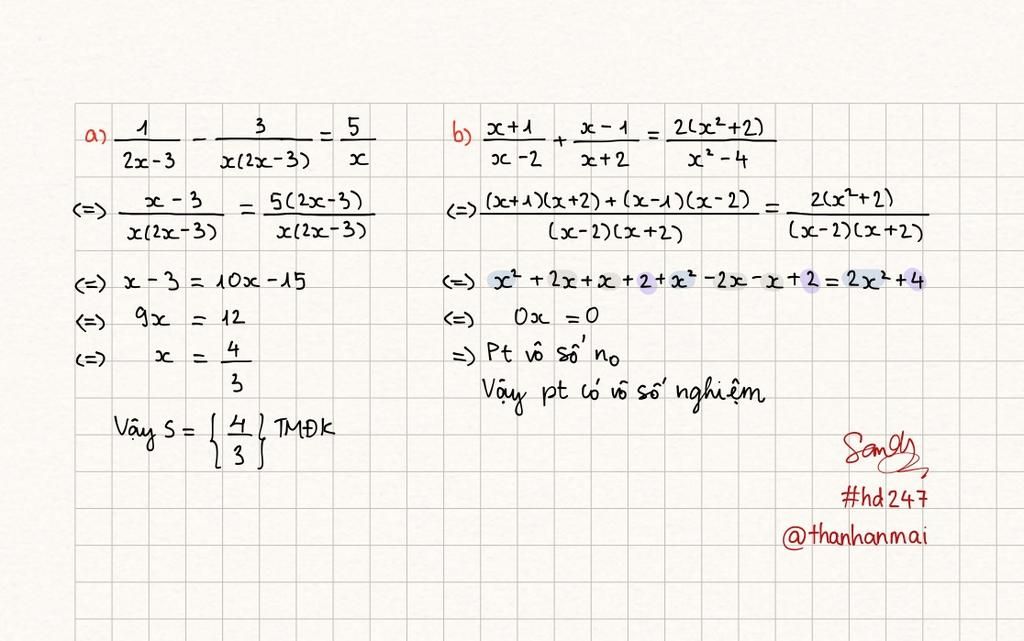 a) 1/(2x-3) - 3/(x(2x-3)) = 5/x
(=) (x-3)/(x(2x-3)) = 5(2x-3)/(x(2x-3))
(=) x-3 = 10x-15
(=) 9x = 12
(=) x = 4/3
Vậy S = {4/3} TMĐK
b) (x+1)/(x-2) + (x-1)/(x+2) = 2(x²+2)/(x²-4)
(=) ((x+1)(x+2)+(x-1)(x-2))/((x-2)(x+2)) = 2(x²+2)/((x-2)(x+2))
(=) x²+2x+x+2+x²-2x-x+2=2x²+4
(=) 0x = 0
=) Pt vô số n₀
Vậy pt có vô số nghiệm
Sandy
#hd247
@thanhanmai